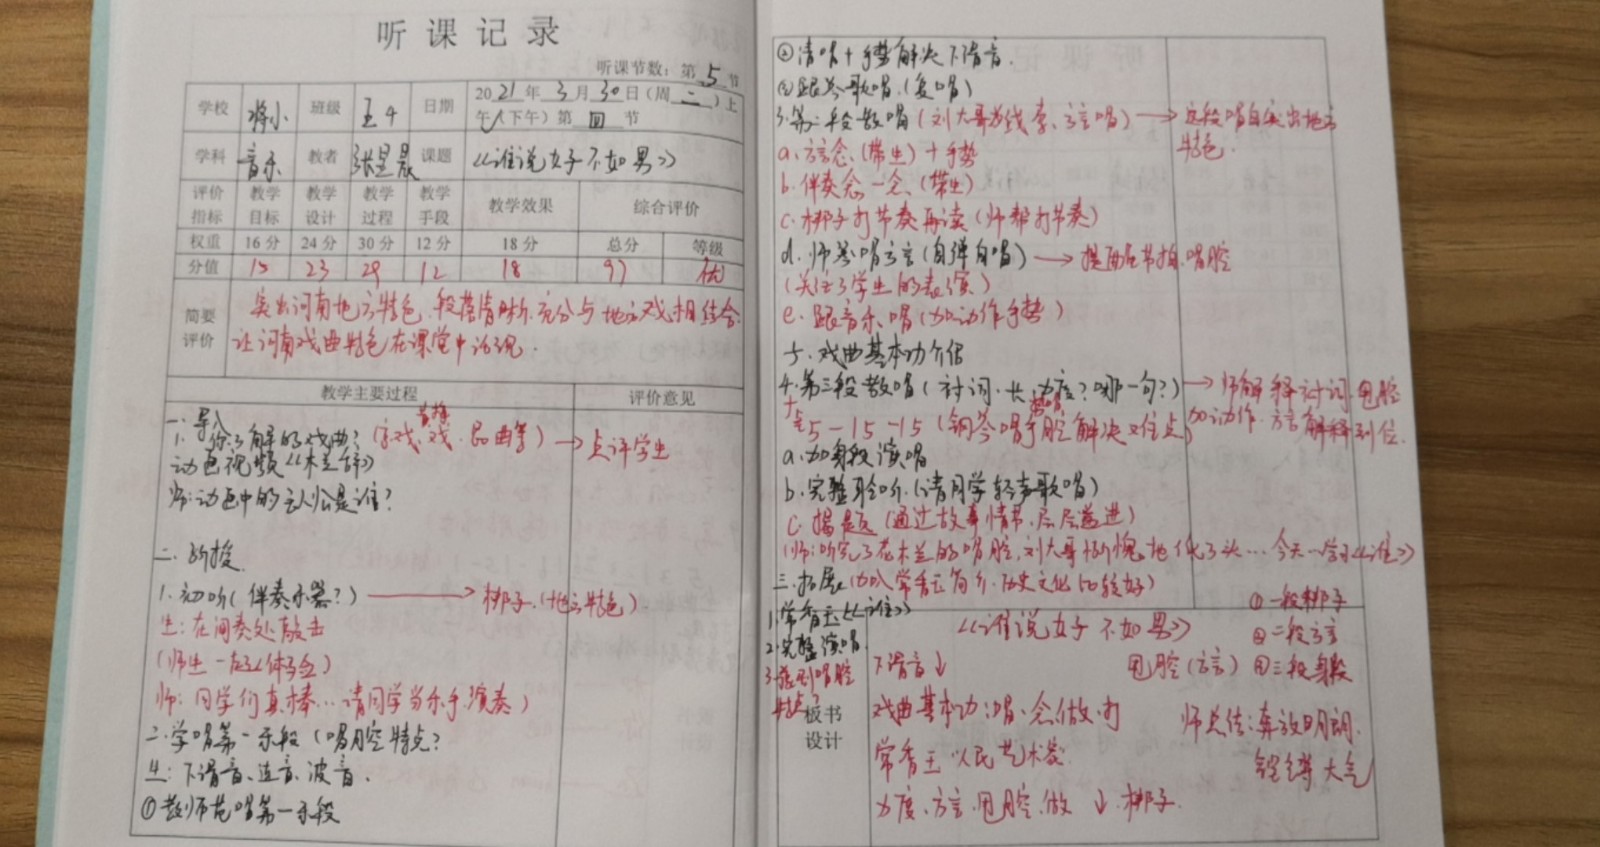 听课记录
听课节数：第5节
学校 将小 班级 五4 日期 2021年3月30日（周二）上
午（下午）第四节
学科 音乐 教者 张昱晨 课题 《谁说女子不如男》
评价指标 教学目标 教学设计 教学过程 教学手段 教学效果 综合评价
权重 16分 24分 30分 12分 18分 总分 等级
分值 15 23 29 12 18 97 优
简要评价
突出河南地方特色，段落清晰，充分与地方戏相结合，
让河南戏曲特色在课堂中活现。
教学主要过程 评价意见
一、导入
1. 你了解的戏曲？（京戏、戏、昆曲等）→点评学生
动画视频《木兰辞》
师：动画中的主人公是谁？
二、新授
1.初听（伴奏乐器？）→梆子（地方特色）
生：在间奏处敲击
（师生一起体验）
师：同学们真棒…请同学当乐手演奏）
二.学唱第一乐段（唱腔特点？
生：下滑音、连音、波音、
①教师范唱第一乐段
②清唱+手势解决下滑音.
③跟琴歌唱（复唱）
3.第二段教唱（刘大哥为线索、方言唱）→这段唱段突出地方
特色.
a.方言念（带生）+手势
b.伴奏念一念（带生）
c.梆子打节奏再读（师帮打节奏）
d.师琴唱方言（自弹自唱）→提醒尾节拍.唱腔
（关注了学生的表演）
e.跟音乐唱（加动作手势）
戏曲基本功介绍
4.第三段教唱（衬词.长.力度？哪一句？）→师解释衬词.甩腔
加动作.方言解释到位.
5-15-15（钢琴唱甩腔解决难点）
a.加身段演唱
b.完整聆听（请同学轻声歌唱）
c.揭题（通过故事情节.层层递进）
（师：听完了花木兰的唱腔，刘大哥惭愧地低了头…今天学习《谁》）
三.拓展（加入常香玉简介.历史文化比较好）
1.常香玉《谁》
2.完整演唱.
3.唱腔
特点
板书设计
《谁说女子不如男》
①一段梆子
②二段方言
③三段身段
下滑音↓
甩腔（方言）
戏曲基本功：唱、念、做、打
师总结：奔放明朗.
铿锵大气
常香玉 人民艺术家
力度、方言.甩腔.做 ↓.梆子.